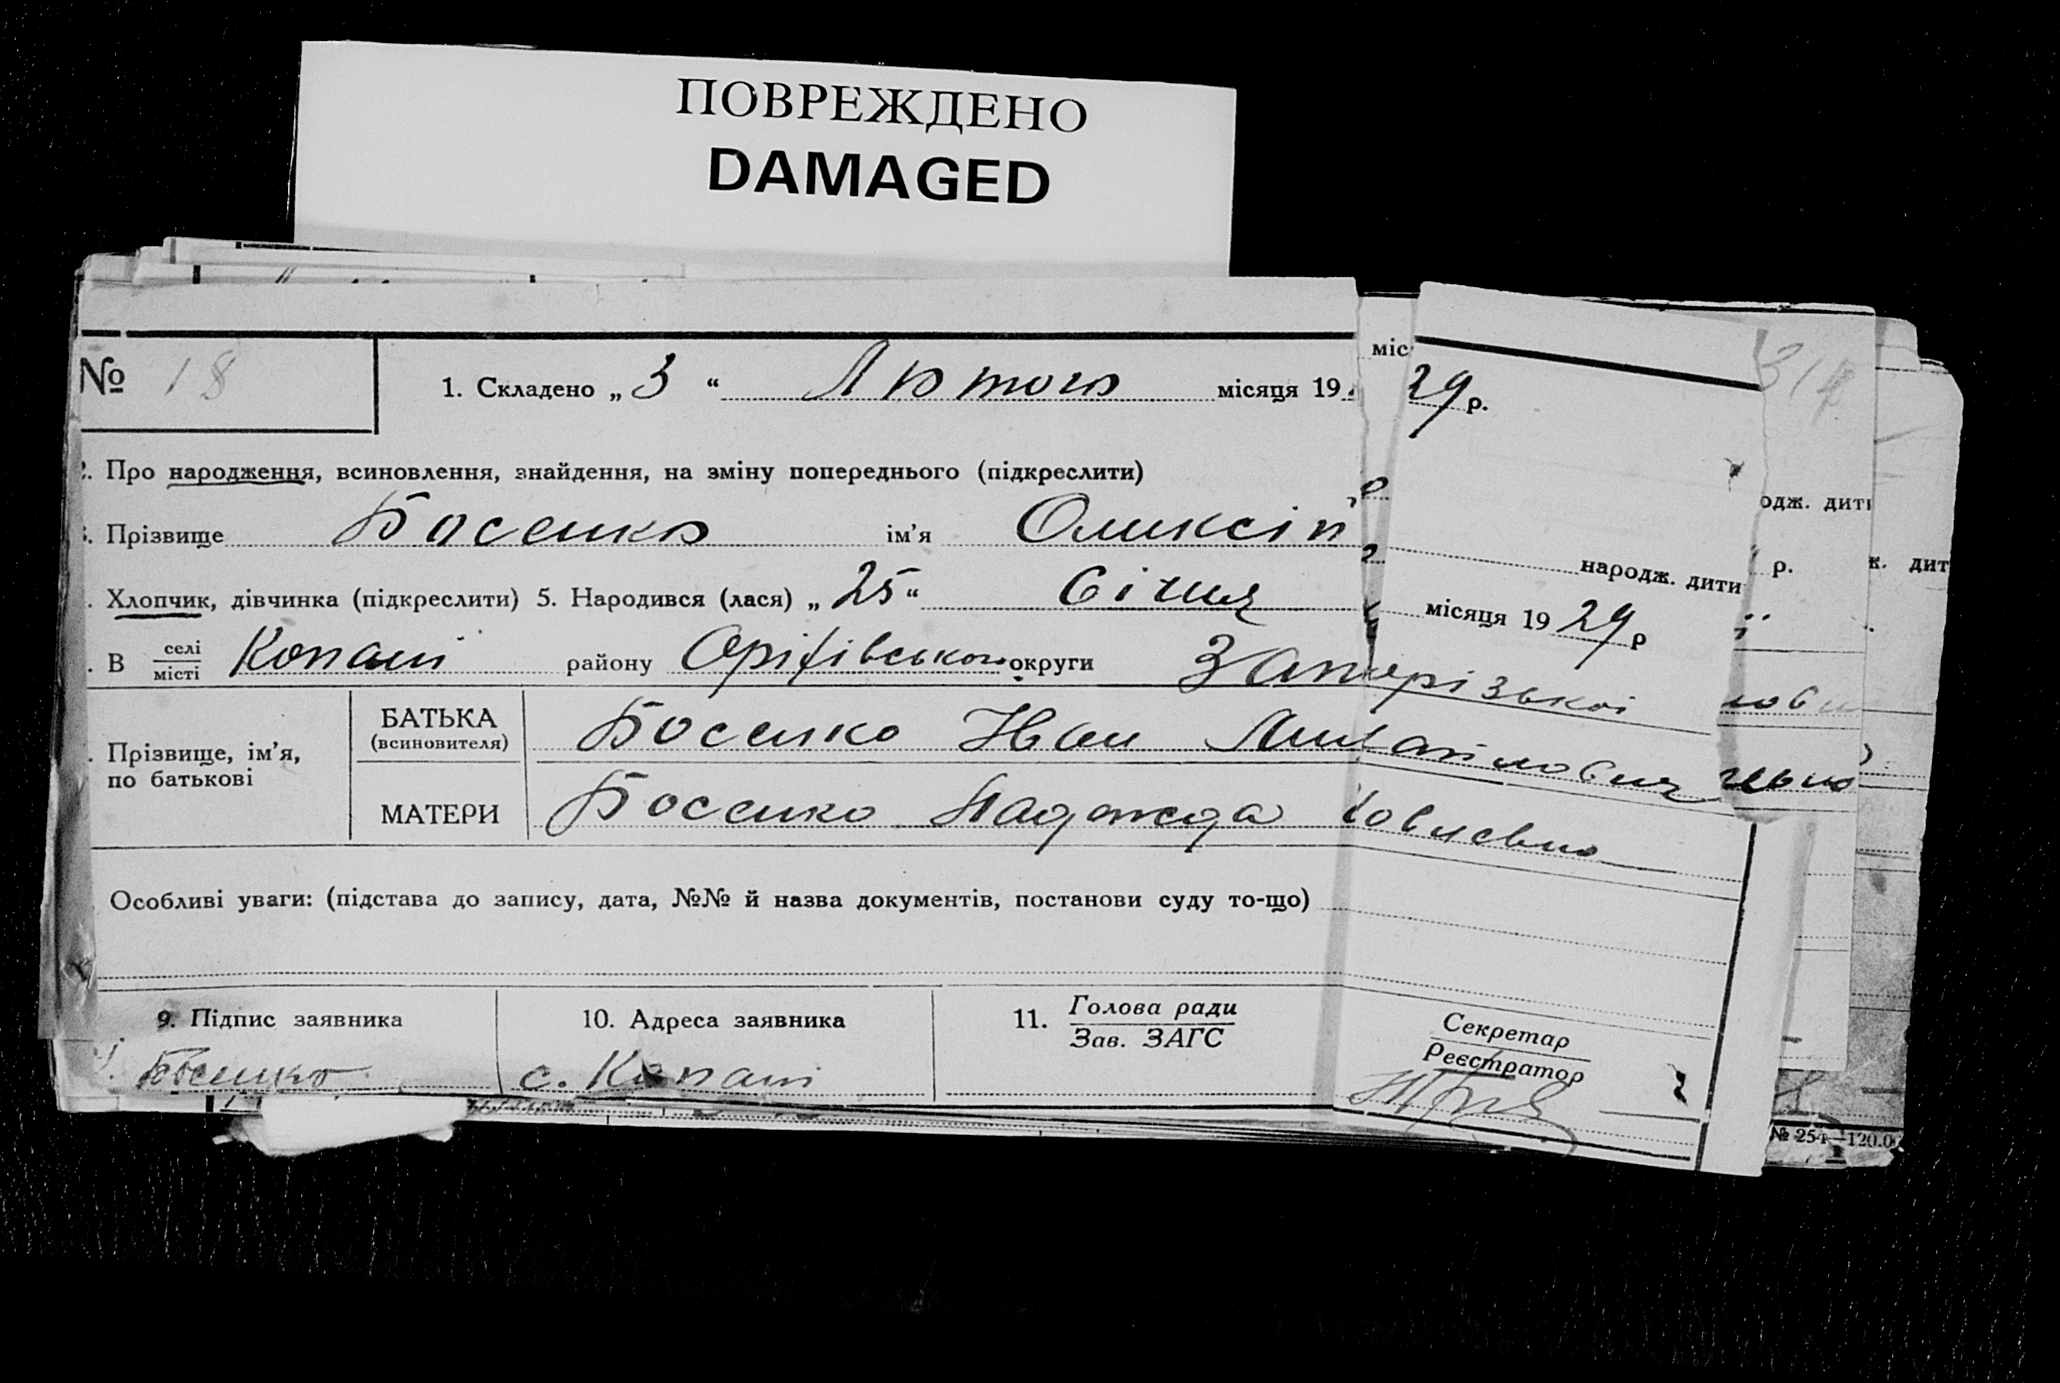 ПОВРЕЖДЕНО
DAMAGED
№ 18
1. Складено „ 3 “ Лютого місяця 19 29 р.
міс
2. Про народження, всиновлення, знайдення, на зміну попереднього (підкреслити)
одж. дити
Прізвище Босенко ім'я Оликсій народж. дити
р.
ж. дит
Хлопчик, дівчинка (підкреслити) 5. Народився (лася) „ 25 “ Січня місяця 19 29 р
В селі Копані району Оріхівського округи Запорізької
місті
Прізвище, ім'я, по батькові
БАТЬКА (всиновителя) Босенко Иван Михайлович
МАТЕРИ Босенко Надежда
Особливі уваги: (підстава до запису, дата, №№ й назва документів, постанови суду то-що)
9. Підпис заявника
10. Адреса заявника
11. Голова ради
Зав. ЗАГС
Секретар
Реєстратор
Босенко
с. Копані